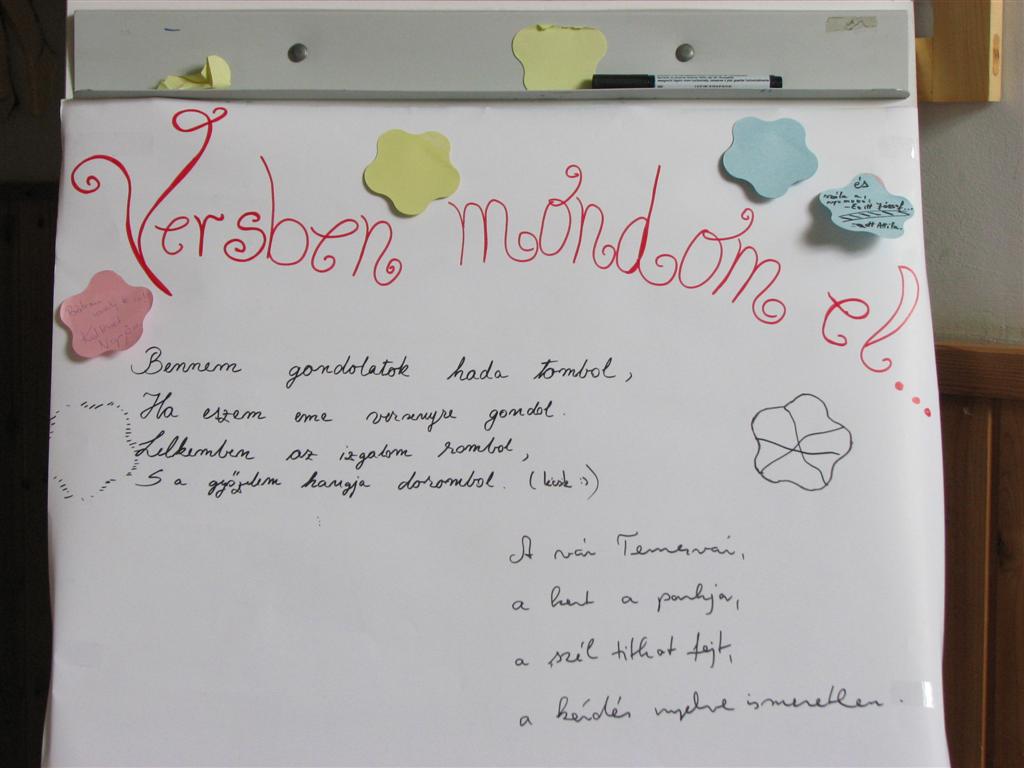 Versben mondom el...
és
Bennem gondolatok hada tombol,
Ha eszem eme versenyre gondol.
Lelkemben az izgalom rombol,
S a győzelem hangja dorombol. ( :)
A vár Temesvár,
a kert a parkja,
a szél titkot fejt,
a kérdés nyelve ismeretlen.